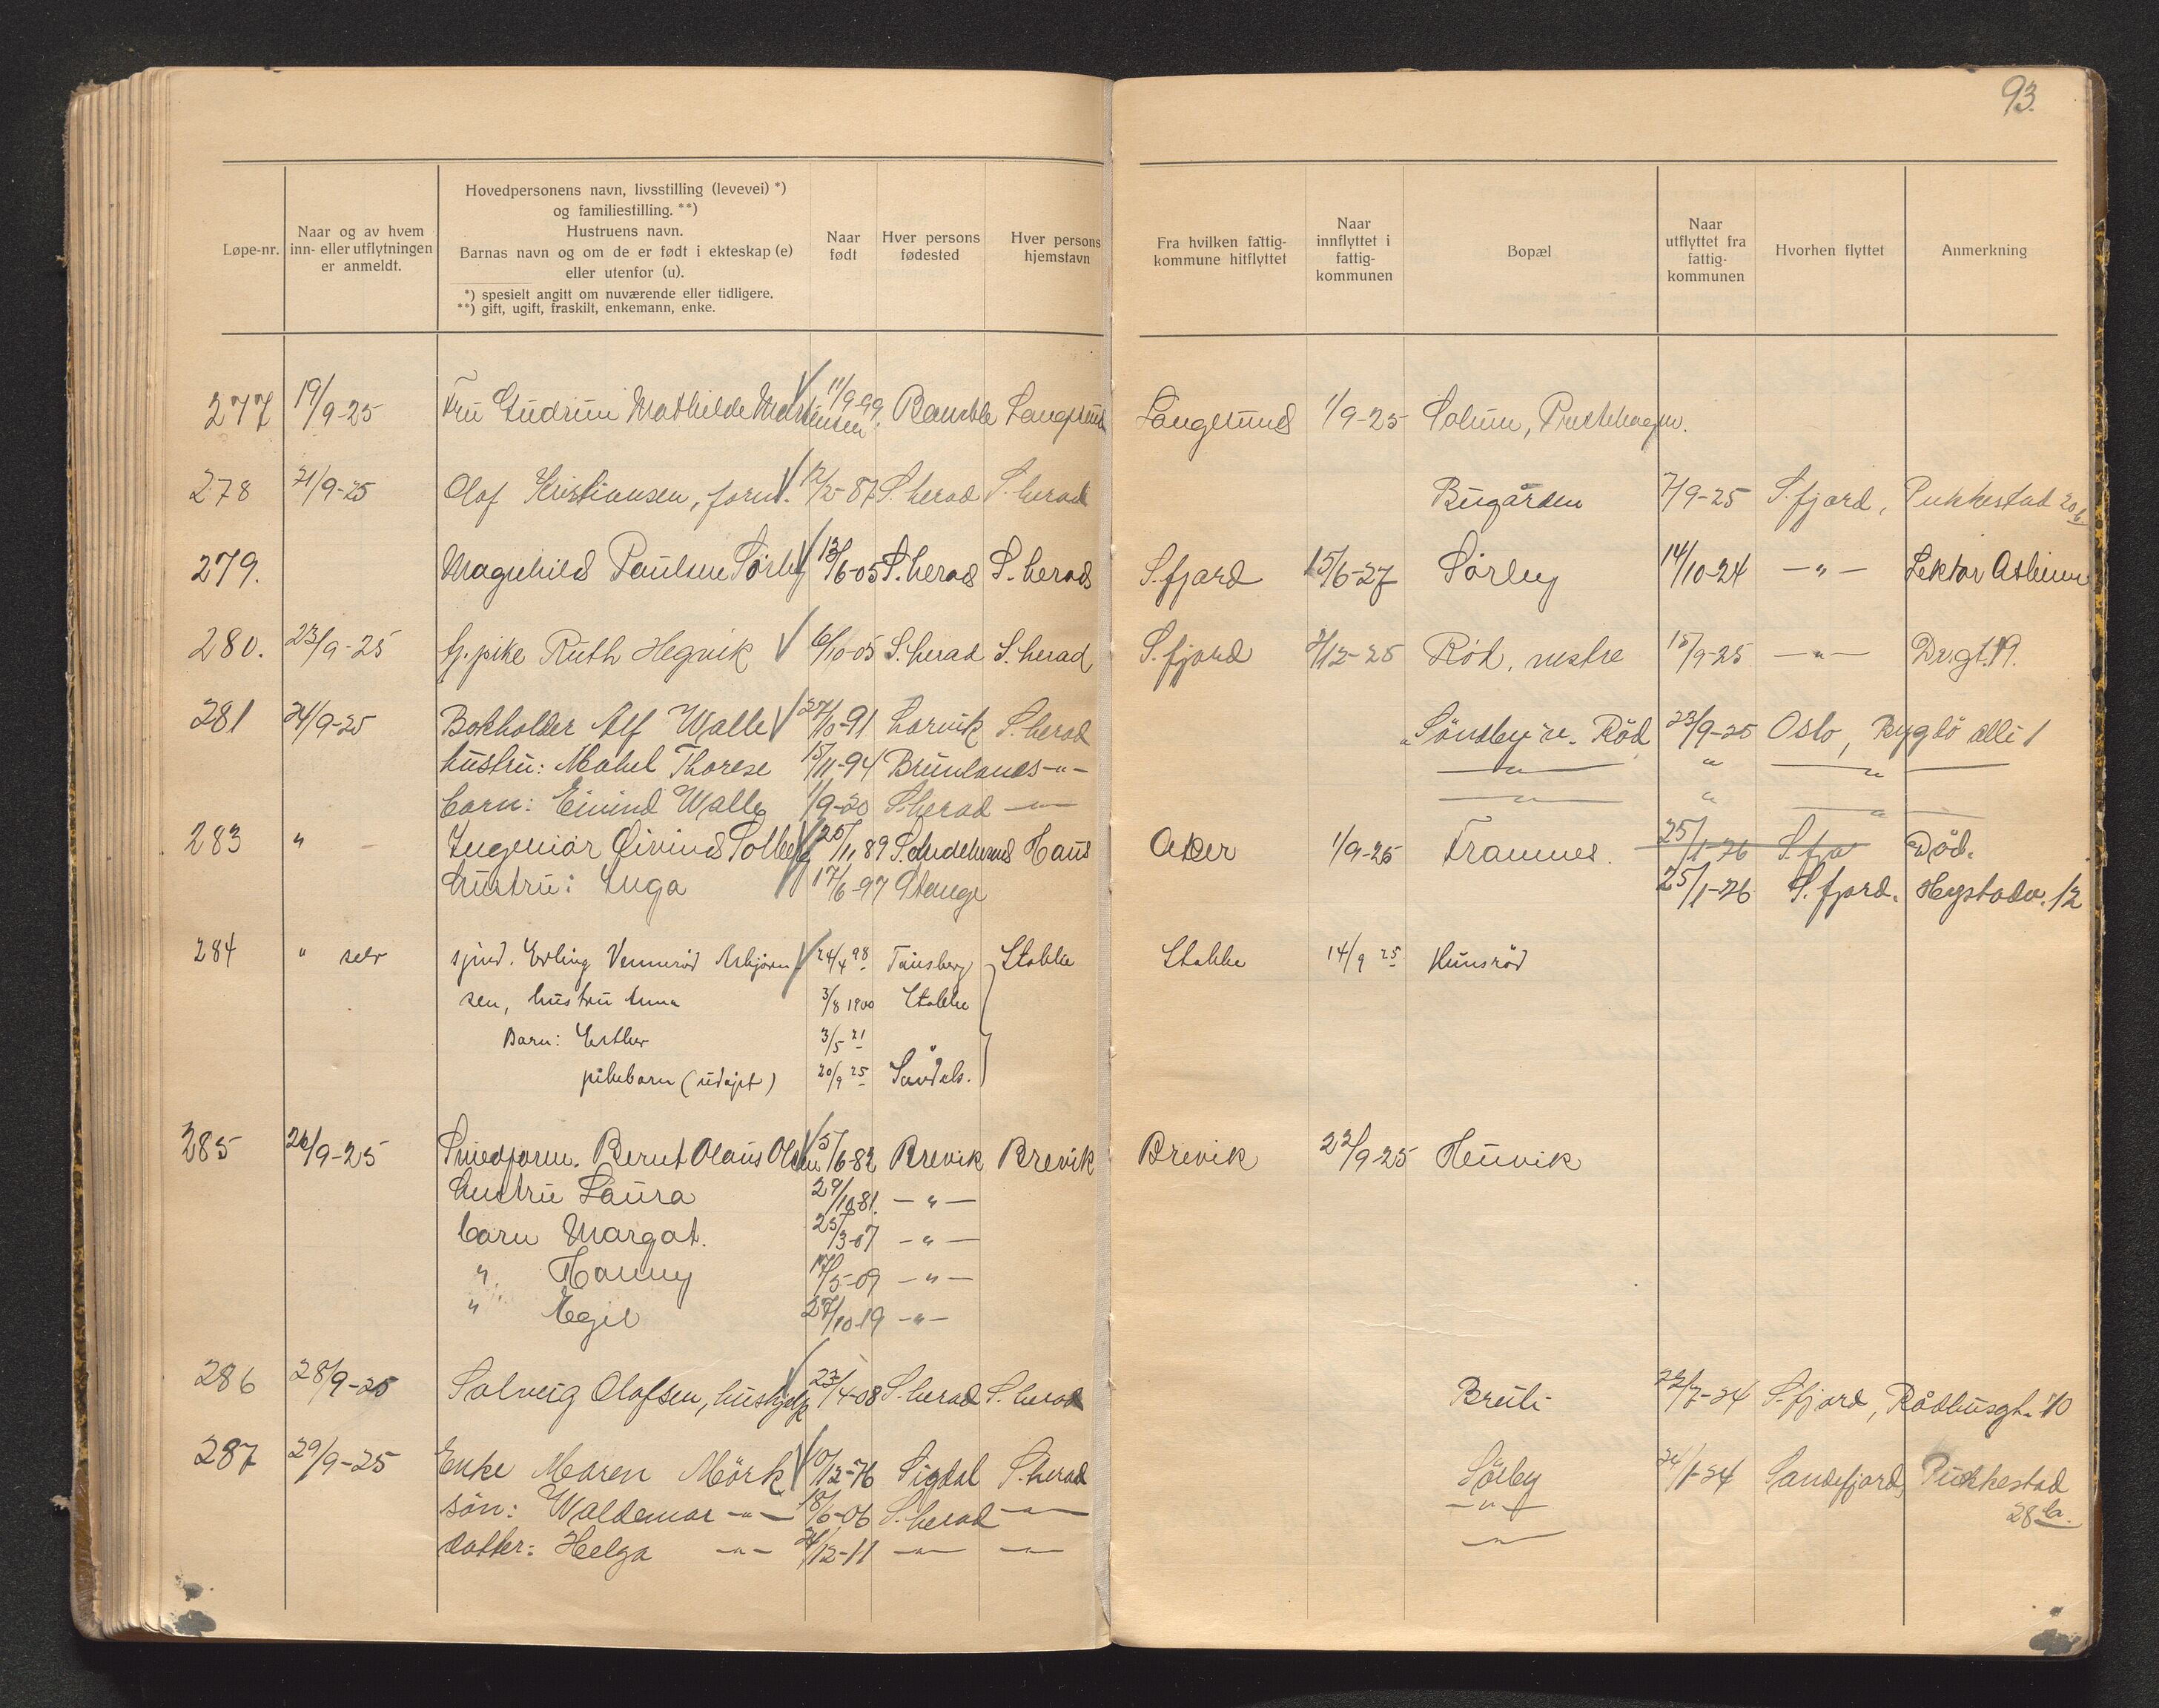 93.
Løpe-nr.
Naar og av hvem
inn- eller utflytningen
er anmeldt.
Hovedpersonens navn, livsstilling (levevei) *)
og familiestilling. **)
Hustruens navn.
Barnas navn og om de er født i ekteskap (e)
eller utenfor (u).
*) spesielt angitt om nuværende eller tidligere.
**) gift, ugift, fraskilt, enkemann, enke.
Naar
født
Hver persons
fødested
Hver persons
hjemstavn
Fra hvilken fattig-
kommune hitflyttet
Naar
innflyttet i
fattig-
kommunen
Bopæl
Naar
utflyttet fra
fattig-
kommunen
Hvorhen flyttet
Anmerkning
277 19/9-25 Fru Gudrun Mathilde Martensen 11/9-99. Bamble Langesund Langesund 1/9-25 Solum, Prestehagen.
278 21/9-25 Olof Kristiansen, form. 12/2-87 S. herad S. herad Bugården 7/9-25 S. fjord, Pukkestad 20 b
279. Magnhild Paulsen Sørby 13/6-05 S. herad S. herad S. fjord 15/6-27 Sørby 14/10-24 -"- Lektor Asheim
280. 23/9-25 tj. pike Ruth Hegnik 6/10-05 S. herad S. herad S. fjord 2/12-25 Röd, vestre 15/9-25 -"- Dr.gt. 19.
281 24/9-25 Bokholder Alf Walle 27/10-91 Larvik S. herad "Sönsby" v. Röd 23/9-25 Oslo, Bygdö allé 1
hustru: Mabel Therese 15/11-94 Brunlanes -"- -"- " -"-
barn: Eivind Walle 1/9-20 S. herad -"- -"- " -"-
283 " Ingeniør Øivind Solberg 25/11 89 Skudeknes Haus Aker 1/9-25 Framnes. 25/1-26 S. fjo Død.
hustru: Inga 17/6-97 Stange 25/1-26 S. fjord. Hystadv. 12
284 " selv sjmd. Erling Vennerød Asbjørn- 24/4 98 Tønsberg Stokke Stokke 14/9 25 Hunsrød
sen, hustru Anna 3/8 1900 Stokke
Barn: Esther 3/5 21 "
pikebarn (udøpt) 20/9 25 Sandeh.
285 26/9-25 Smedform. Bernt Olaus Olsen 5/6-82 Brevik Brevik Brevik 22/9-25 Heuvik
hustru Laura 29/10 81. -"-
barn Margot. 25/3-07 -"-
" Hanny 17/5-09 -"-
" Egil 27/10-19 -"-
286 28/9-25 Solveig Olafsen, hushjelp 23/4-08 S. herad S. herad Breili 22/7-24 S. fjord, Rådhusgt. 10
287 29/9-25 Enke Maren Mörk 10/12-76 Sigdal S. herad Sörby 24/1-24 Sandefjord, Pukkestad
28 b.
sön: Waldemar -"- 18/6-06 S. herad -"- -"-
datter: Helga -"- 24/12-11 -"- -"- -"-